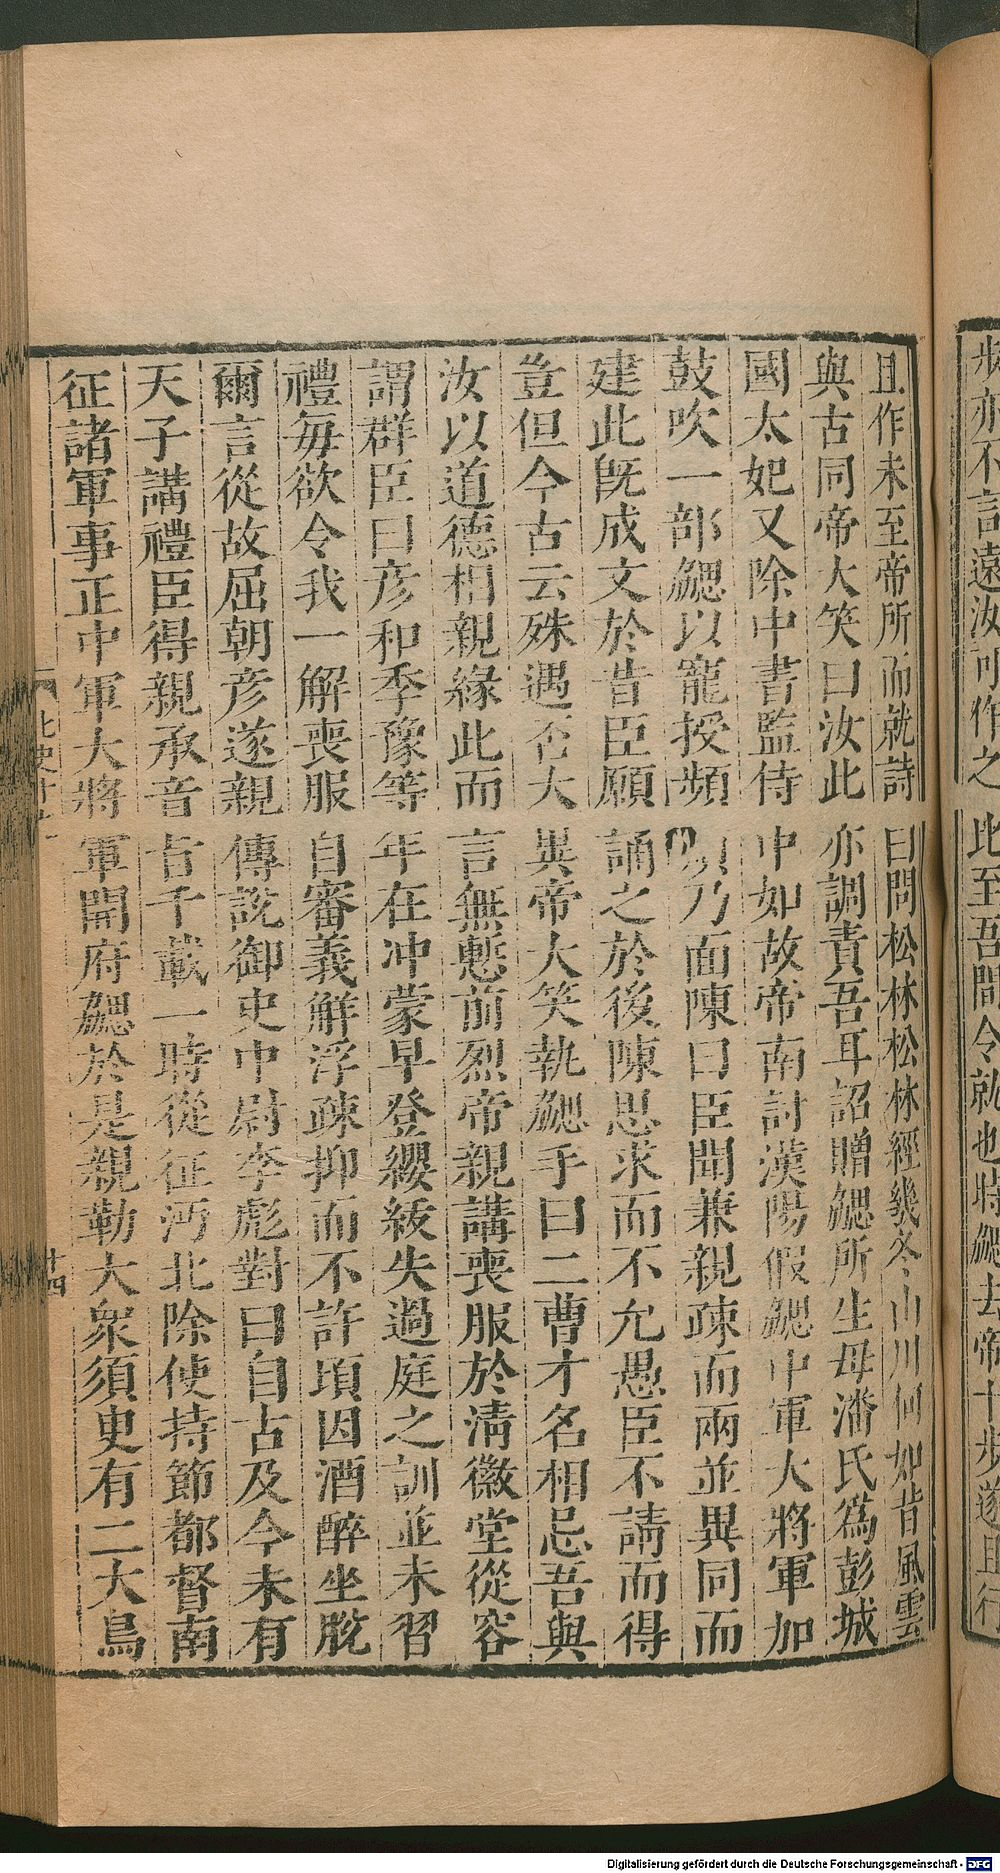 步亦不言遠汝可作之比至吾間令就也時勰去帝十步遂且行
且作未至帝所而就詩曰問松林松林經幾冬山川何如昔風雲
與古同帝大笑曰汝此亦調責吾耳詔贈勰所生母潘氏爲彭城
國太妃又除中書監侍中如故帝南討漢陽假勰中軍大將軍加
鼓吹一部勰以寵授頻煩乃面陳曰臣聞兼親疎而兩並異同而
建此旣成文於昔臣願誦之於後陳思求而不允愚臣不請而得
豈但今古云殊遇否大異帝大笑執勰手曰二曹才名相忌吾與
汝以道德相親緣此而言無慙前烈帝親講喪服於淸徽堂從容
謂群臣曰彦和季豫等年在冲蒙早登纓紱失過庭之訓並未習
禮毎欲令我一解喪服自審義解浮疎抑而不許頃因酒醉坐脫
爾言從故屈朝彦遂親傳說御史中尉李彪對曰自古及今未有
天子講禮臣得親承音旨千載一時從征沔北除使持節都督南
征諸軍事正中軍大將軍開府勰於是親勒大衆須吏有二大鳥
北史十
十四
Digitalisierung gefördert durch die Deutsche Forschungsgemeinschaft - DFG